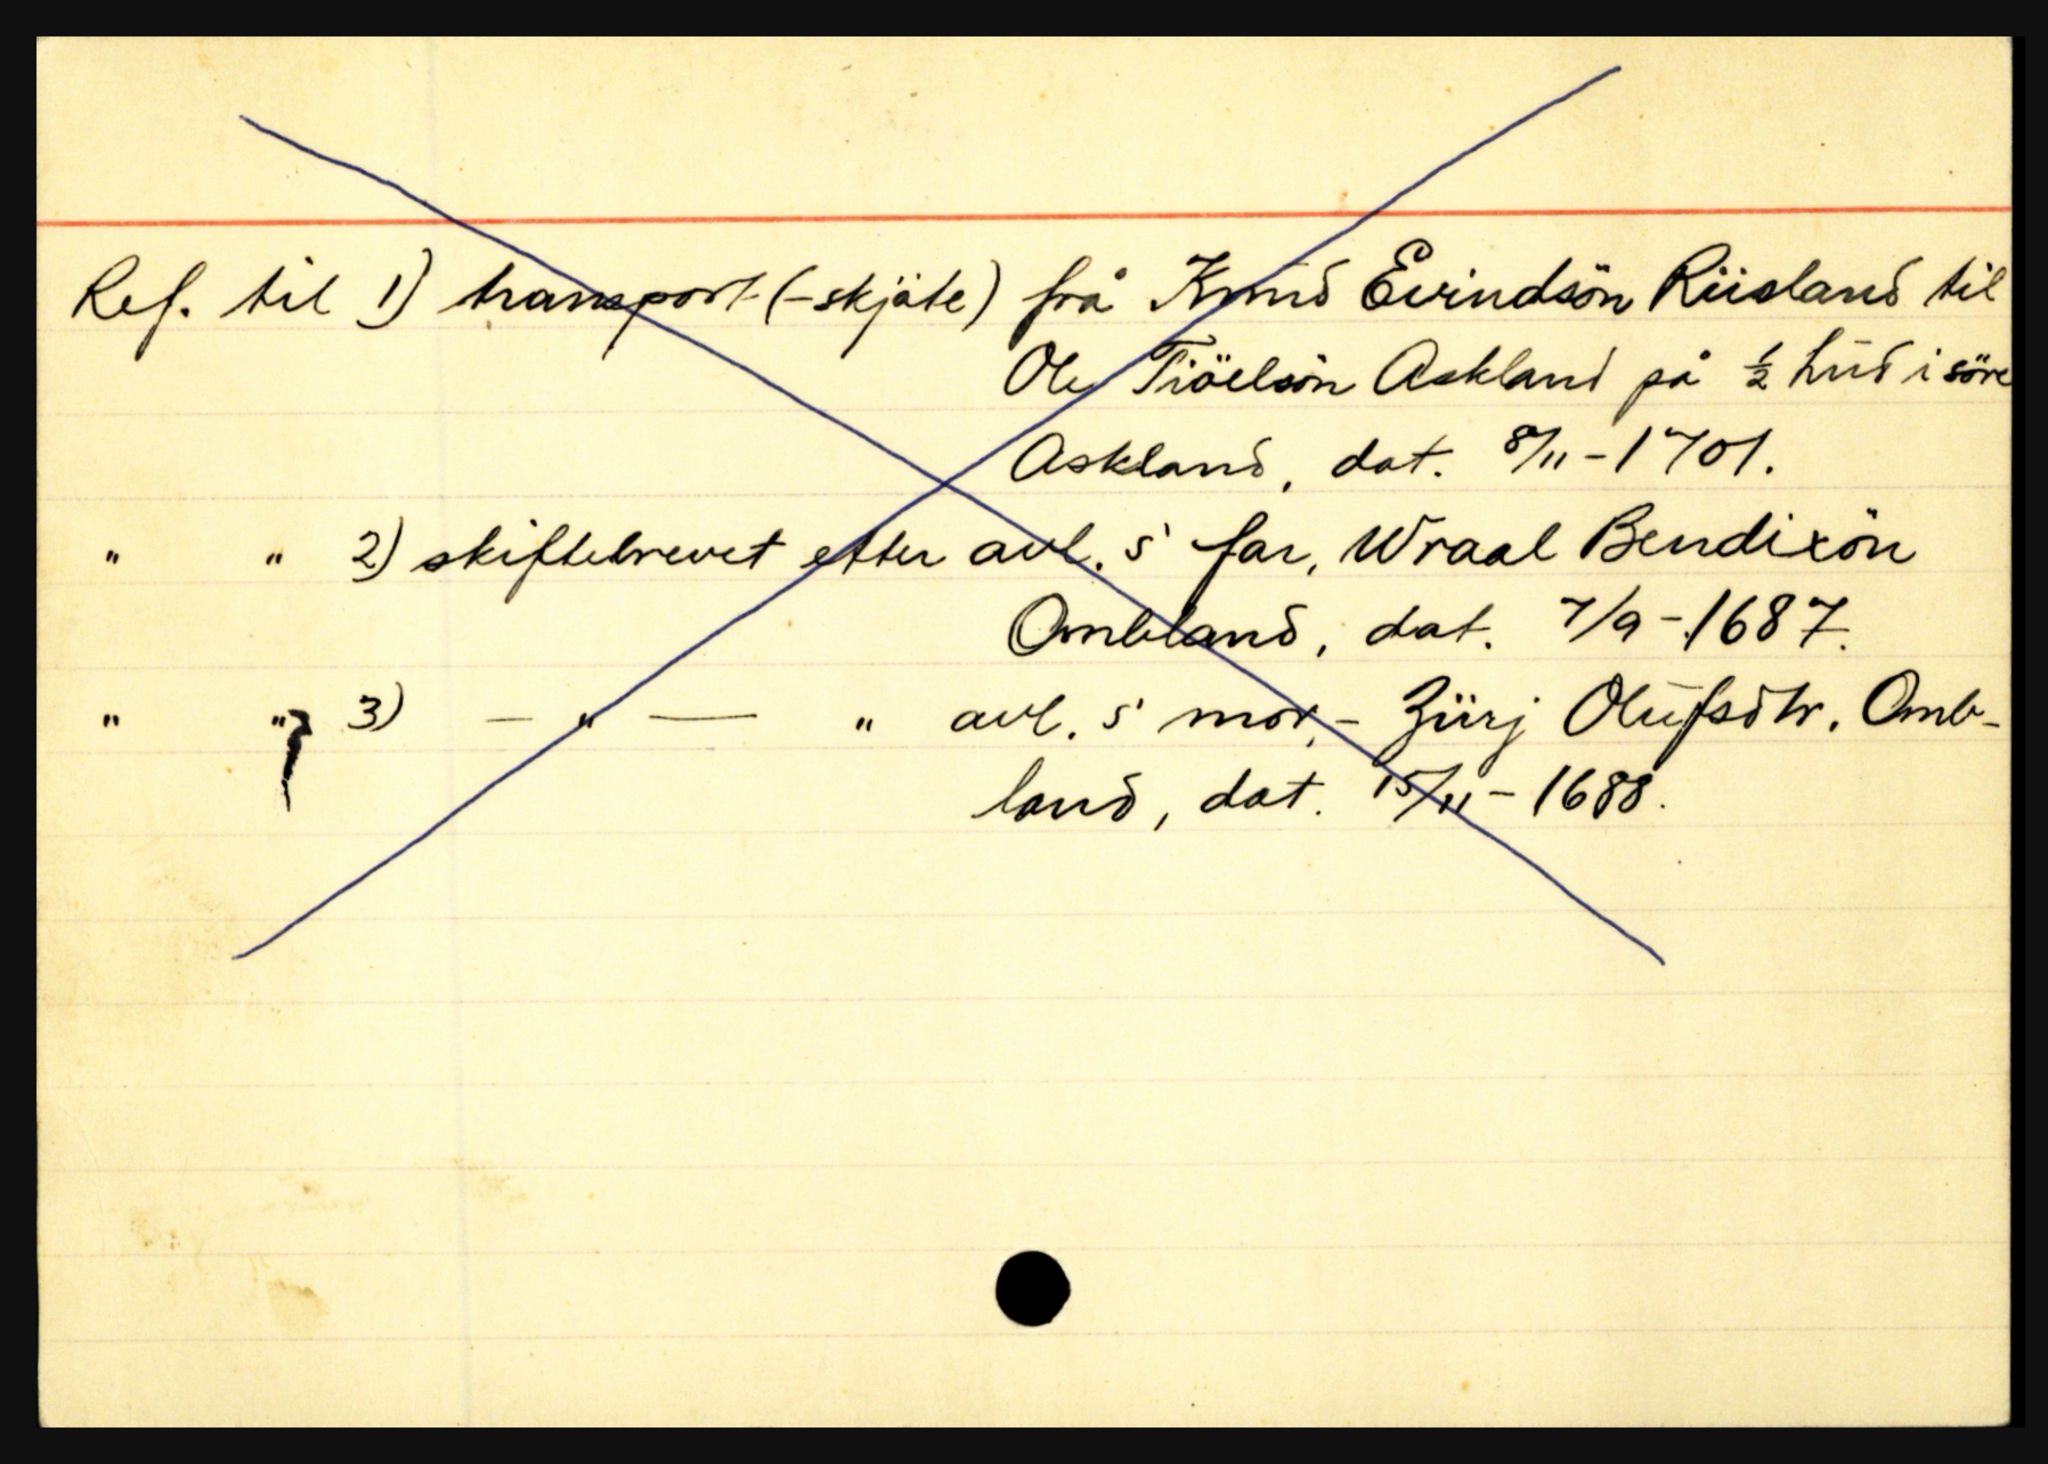 Ref. til 1) transport (-skjöte) frå Knud Evindsön Riisland til
Ole Tiöelsön Askland på ½ hud i söre
Askland, dat. 8/11-1701.
" " 2) skiftebrevet etter avl.s far, Wraal Bendixön
Ombland, dat. 7/9-1687.
" " 3) - " - " avl.s mor, - Zürj Olufsdtr. Omb-
land, dat. 15/11-1688.